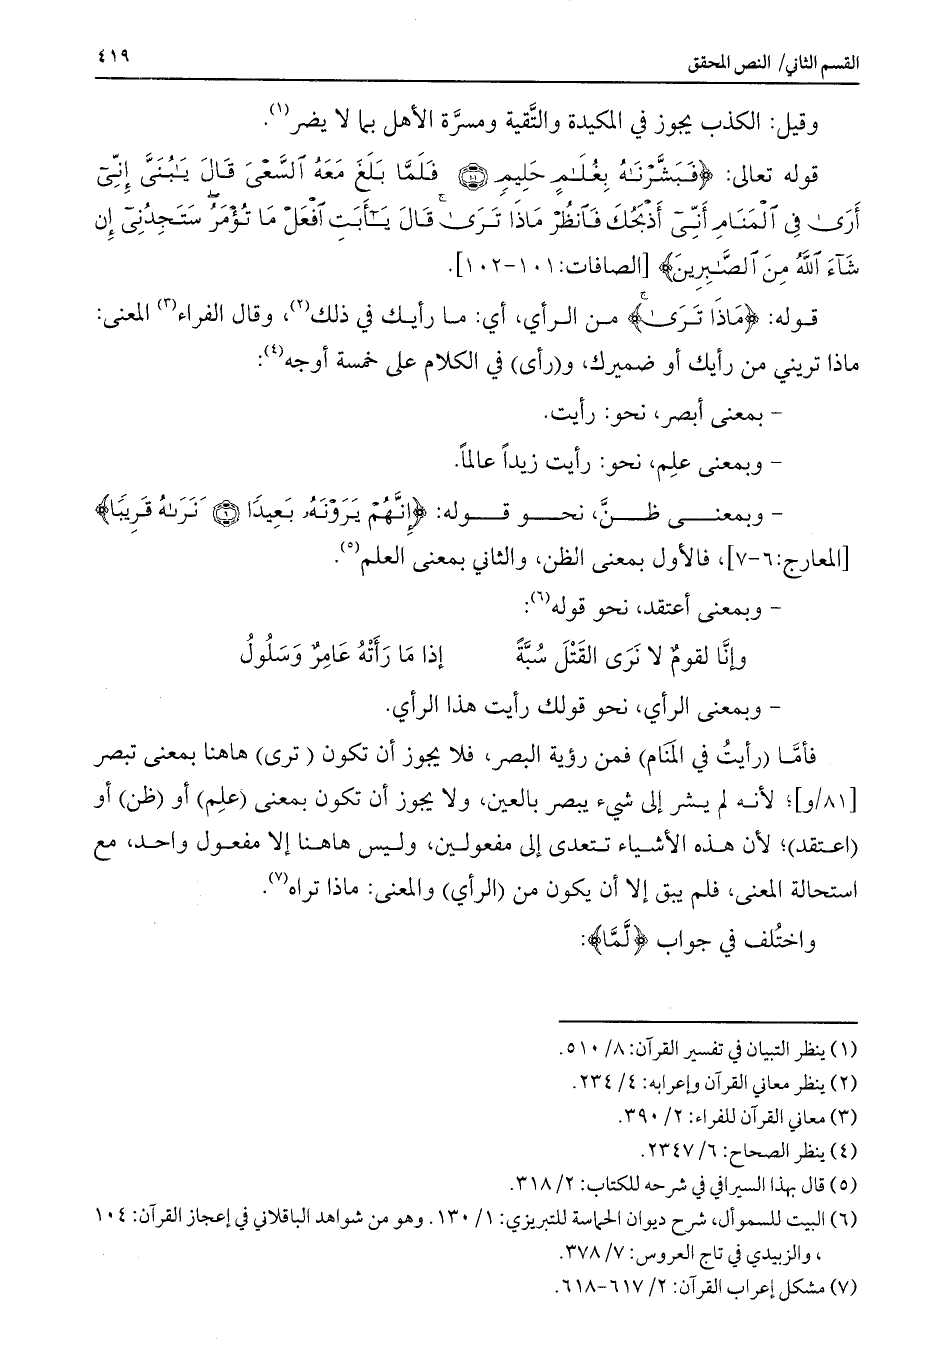 القسم الثاني/ النص المحقق ٤١٩
وقيل: الكذب يجوز في المكيدة والتَّقية ومسرَّة الأهل بما لا يضر(١).
قوله تعالى: ﴿فَبَشَّرْنَـٰهُ بِغُلَـٰمٍ حَلِيمٍ ۝١٠١ فَلَمَّا بَلَغَ مَعَهُ ٱلسَّعْىَ قَالَ يَـٰبُنَىَّ إِنِّىٓ
أَرَىٰ فِى ٱلْمَنَامِ أَنِّىٓ أَذْبَحُكَ فَٱنظُرْ مَاذَا تَرَىٰ ۚ قَالَ يَـٰٓأَبَتِ ٱفْعَلْ مَا تُؤْمَرُ ۖ سَتَجِدُنِىٓ إِن
شَآءَ ٱللَّهُ مِنَ ٱلصَّـٰبِرِينَ﴾ [الصافات:١٠١-١٠٢].
قوله: ﴿مَاذَا تَرَىٰ ۚ﴾ من الرأي، أي: ما رأيك في ذلك(٢)، وقال الفراء(٣) المعنى:
ماذا تريني من رأيك أو ضميرك، و(رأى) في الكلام على خمسة أوجه(٤):
- بمعنى أبصر، نحو: رأيت.
- وبمعنى علِم، نحو: رأيت زيداً عالماً.
- وبمعنى ظنَّ، نحو قوله: ﴿إِنَّهُمْ يَرَوْنَهُۥ بَعِيدًا ۝٦ وَنَرَىٰهُ قَرِيبًا﴾
[المعارج:٦-٧]، فالأول بمعنى الظن، والثاني بمعنى العلم(٥).
- وبمعنى أعتقد، نحو قوله(٦):
وإنَّا لقومٌ لا نَرَى القَتْلَ سُبَّةً إذا مَا رَأَتْهُ عَامِرٌ وَسَلُولُ
- وبمعنى الرأي، نحو قولك رأيت هذا الرأي.
فأمَّا (رأيتُ في المَنام) فمن رؤية البصر، فلا يجوز أن تكون ( ترى) هاهنا بمعنى تبصر
[٨١/و]؛ لأنه لم يشر إلى شيء يبصر بالعين، ولا يجوز أن تكون بمعنى (علِم) أو (ظن) أو
(اعتقد)؛ لأن هذه الأشياء تتعدى إلى مفعولين، وليس هاهنا إلا مفعول واحد، مع
استحالة المعنى، فلم يبق إلا أن يكون من (الرأي) والمعنى: ماذا تراه(٧).
واختُلف في جواب ﴿لَّمَّا﴾:
(١) ينظر التبيان في تفسير القرآن: ٨/ ٥١٠.
(٢) ينظر معاني القرآن وإعرابه: ٤/ ٢٣٤.
(٣) معاني القرآن للفراء: ٢/ ٣٩٠.
(٤) ينظر الصحاح: ٦/ ٢٣٤٧.
(٥) قال بهذا السيرافي في شرحه للكتاب: ٢/ ٣١٨.
(٦) البيت للسموأل، شرح ديوان الحماسة للتبريزي: ١/ ١٣٠. وهو من شواهد الباقلاني في إعجاز القرآن: ١٠٤
، والزبيدي في تاج العروس: ٧/ ٣٧٨.
(٧) مشكل إعراب القرآن: ٢/ ٦١٧-٦١٨.